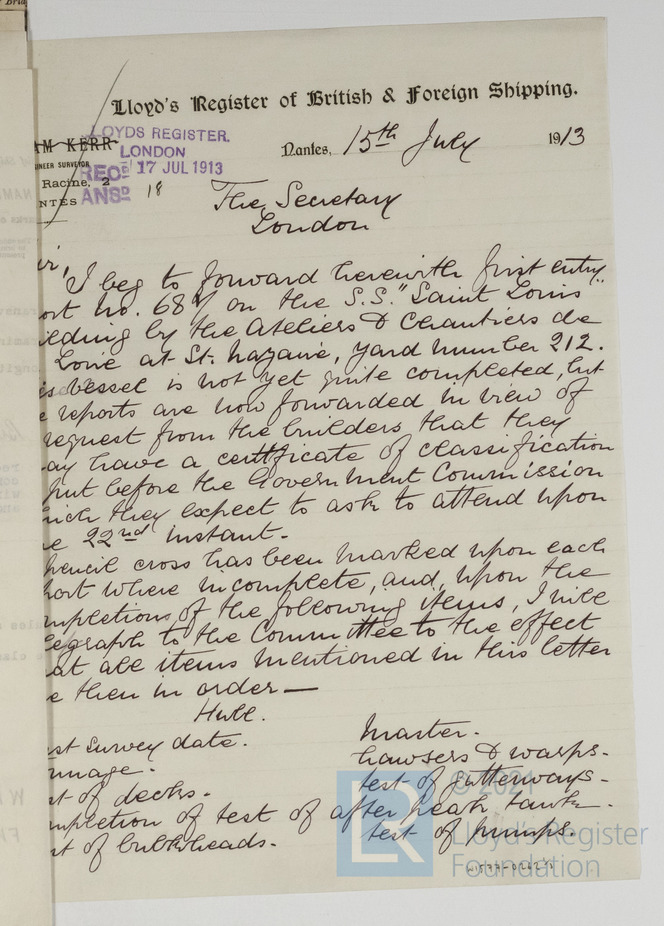 Lloyd's Register of British & Foreign Shipping.
AM KERR
INEER SURVEYOR
Racine, 2
NTES
LLOYDS REGISTER.
LONDON
REC^D 17 JUL 1913
ANS^D 18
Nantes, 15th July 1913
The Secretary
London
ir,
I beg to forward herewith first entry
ort No. 687 on the S.S. "Saint Louis"
ilding by the Ateliers & Chantiers de
Loire at St. Nazaire, yard number 212.
is vessel is not yet quite completed, but
e reports are now forwarded in view of
request from the builders that they
ay have a certificate of classification
put before the Government Commission
hich they expect to ask to attend upon
e 22nd instant.-
pencil cross has been marked upon each
port where incomplete, and, upon the
mpletions of the following items, I will
legraph to the Committee to the effect
at all items mentioned in this letter
e then in order —
Hull.
st survey date.
nnage.
st of decks.
mpletion of test of after peak tank.
st of bulkheads.
Master.
hawsers & warps.
test of gutterways.
test of pumps.
© 2021
Lloyd's Register
Foundation
LR